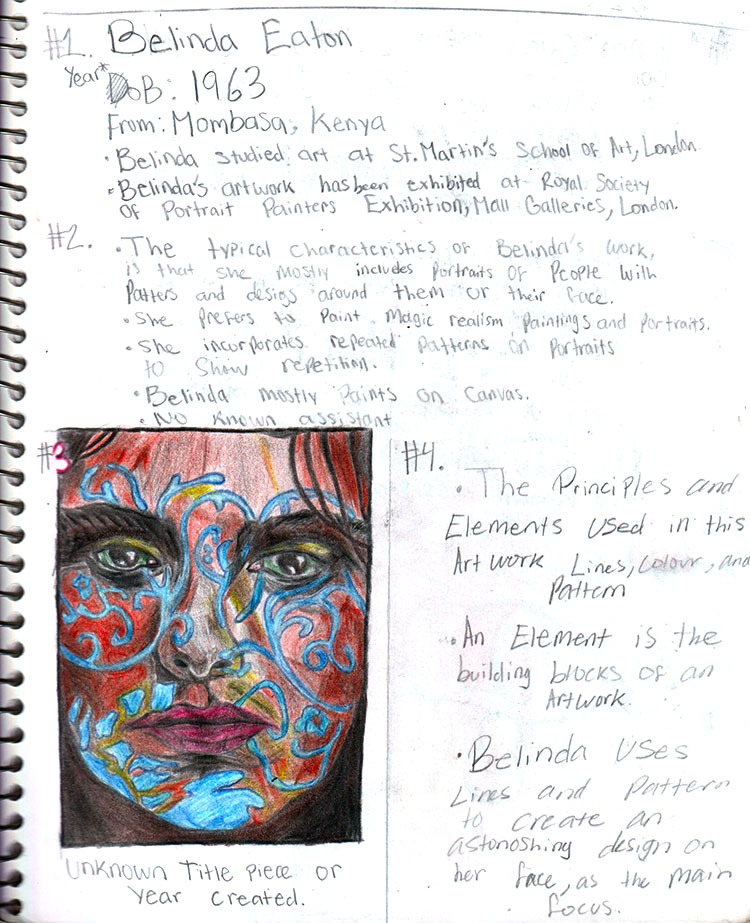 #1. Belinda Eaton
Year*
DoB: 1963
From: Mombasa, Kenya
• Belinda studied art at St. Martin's School of Art, London.
• Belinda's artwork has been exhibited at Royal Society
Of Portrait Painters Exhibition, Mall Galleries, London.
#2. • The typical characteristics of Belinda's work,
is that she mostly includes portraits of People with
Patters and design around them or their face.
• She prefers to Paint Magic realism Paintings and Portraits.
• She incorporates repeated Patterns on Portraits
to Show repetition.
• Belinda mostly Paints on Canvas.
• No known assistant
#3
Unknown Title piece or
Year created.
#4.
• The Principles and
Elements used in this
Artwork Lines, Colour, and
Pattern
• An Element is the
building blocks of an
Artwork.
• Belinda Uses
Lines and Pattern
to create an
astonoshing design on
her face, as the main
focus.